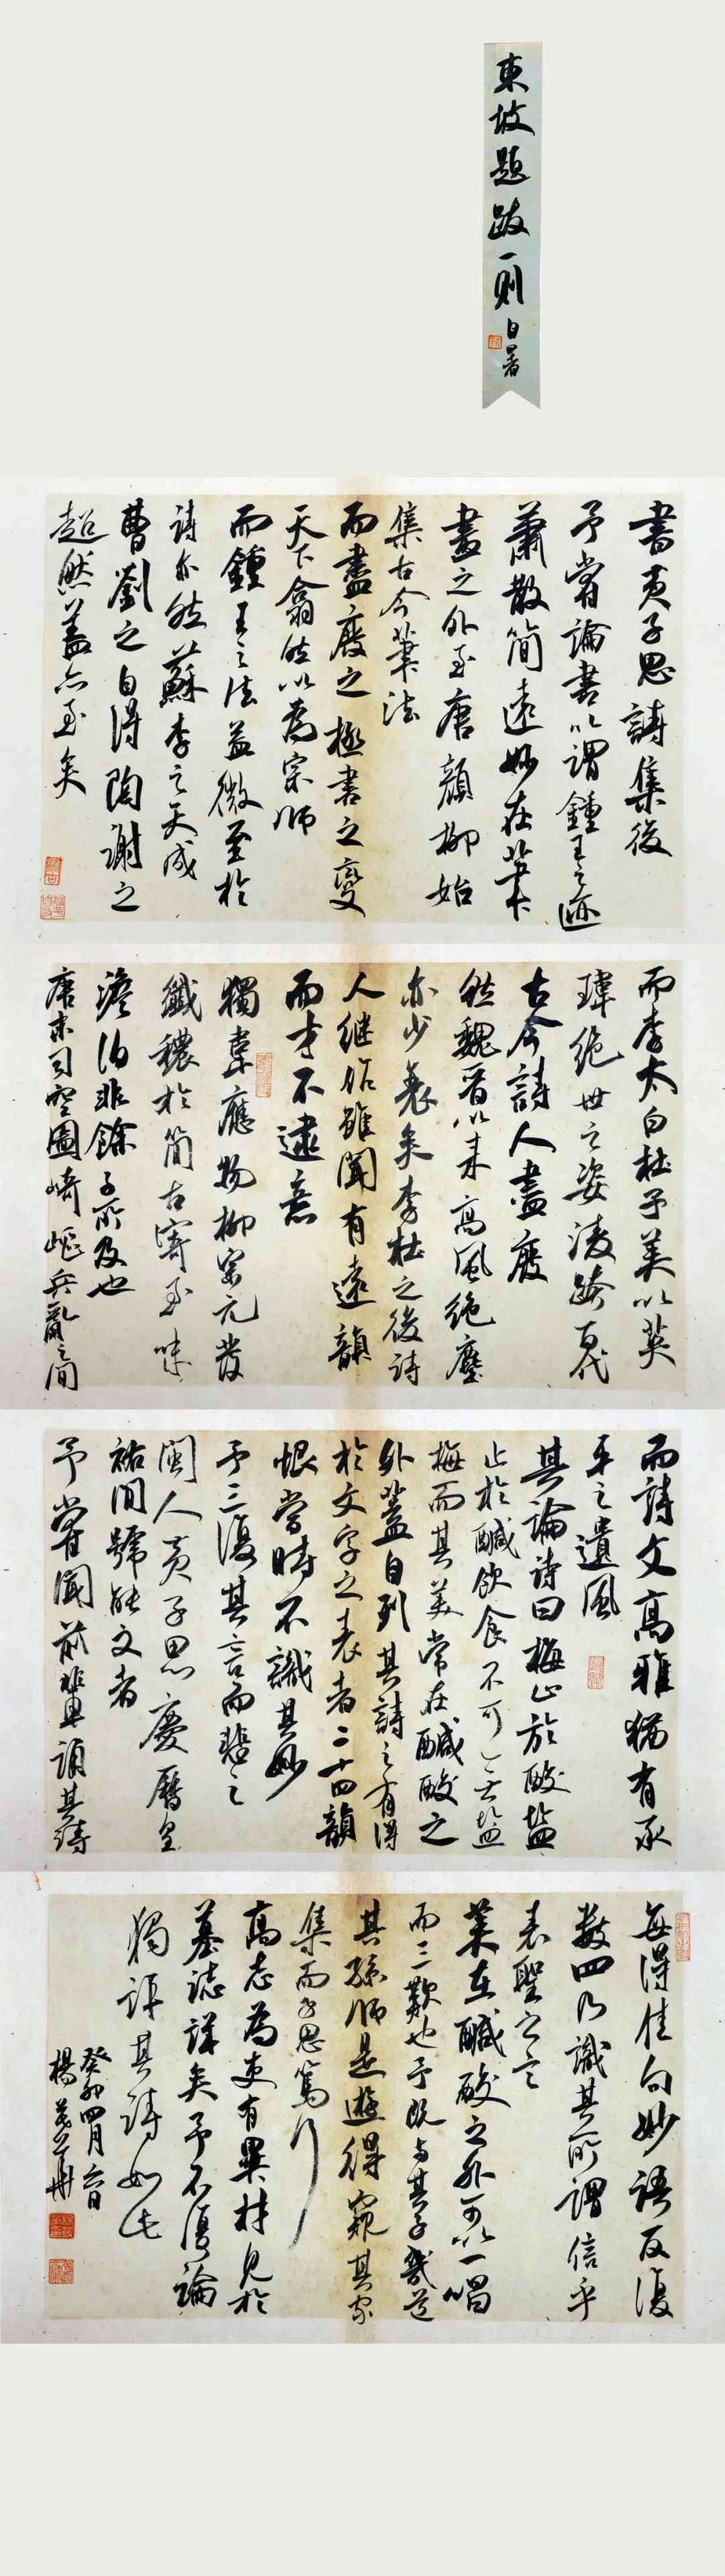 東坡題跋一則 自署
書黄子思詩集後
予嘗論書以謂鍾王之迹
蕭散簡遠妙在筆
畫之外至唐顔柳始
集古今筆法
而盡廢之極書之變
天下翕然以為宗師
而鍾王之法益微至於
詩亦然蘇李之天成
曹劉之自得陶謝之
超然蓋亦至矣
而李太白杜子美以英
瑋絶世之姿淩跨百代
古今詩人盡廢
然魏晉以来高風絶塵
亦少衰矣李杜之後詩
人継作雖閒有遠韻
而才不逮意
獨韋應物柳宗元發
纖穠於簡古寄至味
澹泊非餘子所及也
唐末司空圖崎嶇兵亂之閒
而詩文高雅猶有承
平之遺風
其論詩曰梅止於酸鹽
止於鹹飲食不可無鹽
梅而其美常在鹹酸之
外蓋自列其詩之有得
於文字之表者二十四韻
恨當時不識其妙
予三復其言而悲之
閩人黄子思慶曆皇
祐閒號能文者
予嘗聞前輩誦其詩
每得佳句妙語反復
數四乃識其所謂信乎
表聖之言
美在鹹酸之外可以一唱
而三歎也予既與其子幾道
其孫師是遊得窺其家
集而子思篤行
高志為吏有異材見於
墓誌詳矣予不復論
獨評其詩如此
癸卯四月六日
楊